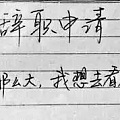 辞职申请
那么大，我想去看